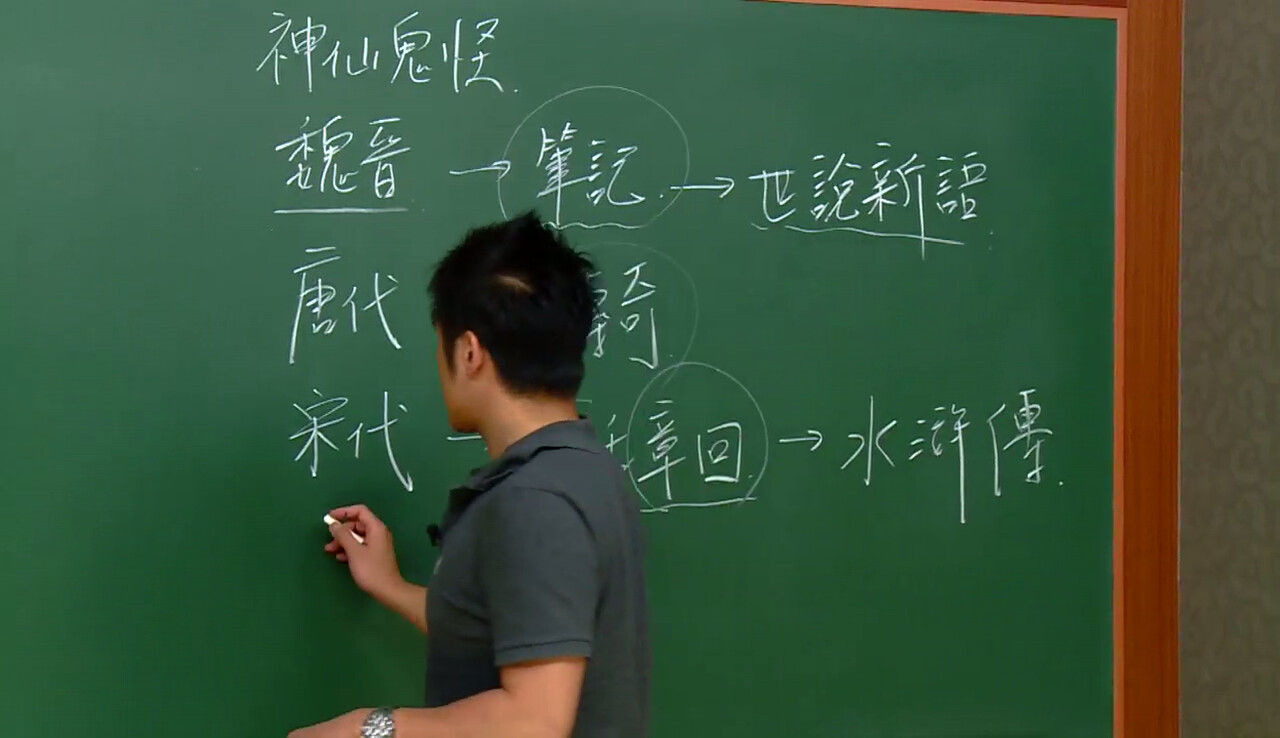 神仙鬼怪.
魏晉 → 筆記. → 世說新語.
唐代 奇.
宋代 章回. → 水滸傳.